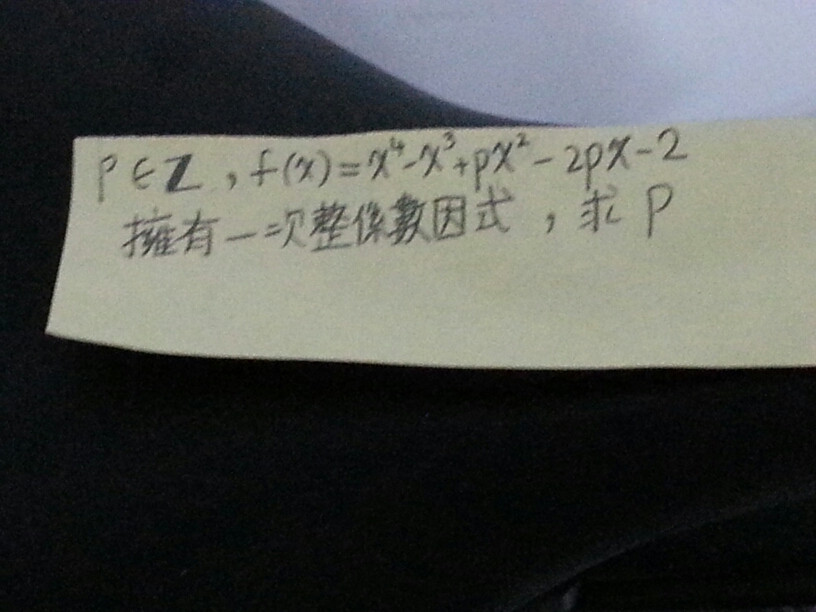 P∈Z,f(x)=x⁴-x³+px²-2px-2
擁有一次整係數因式,求P